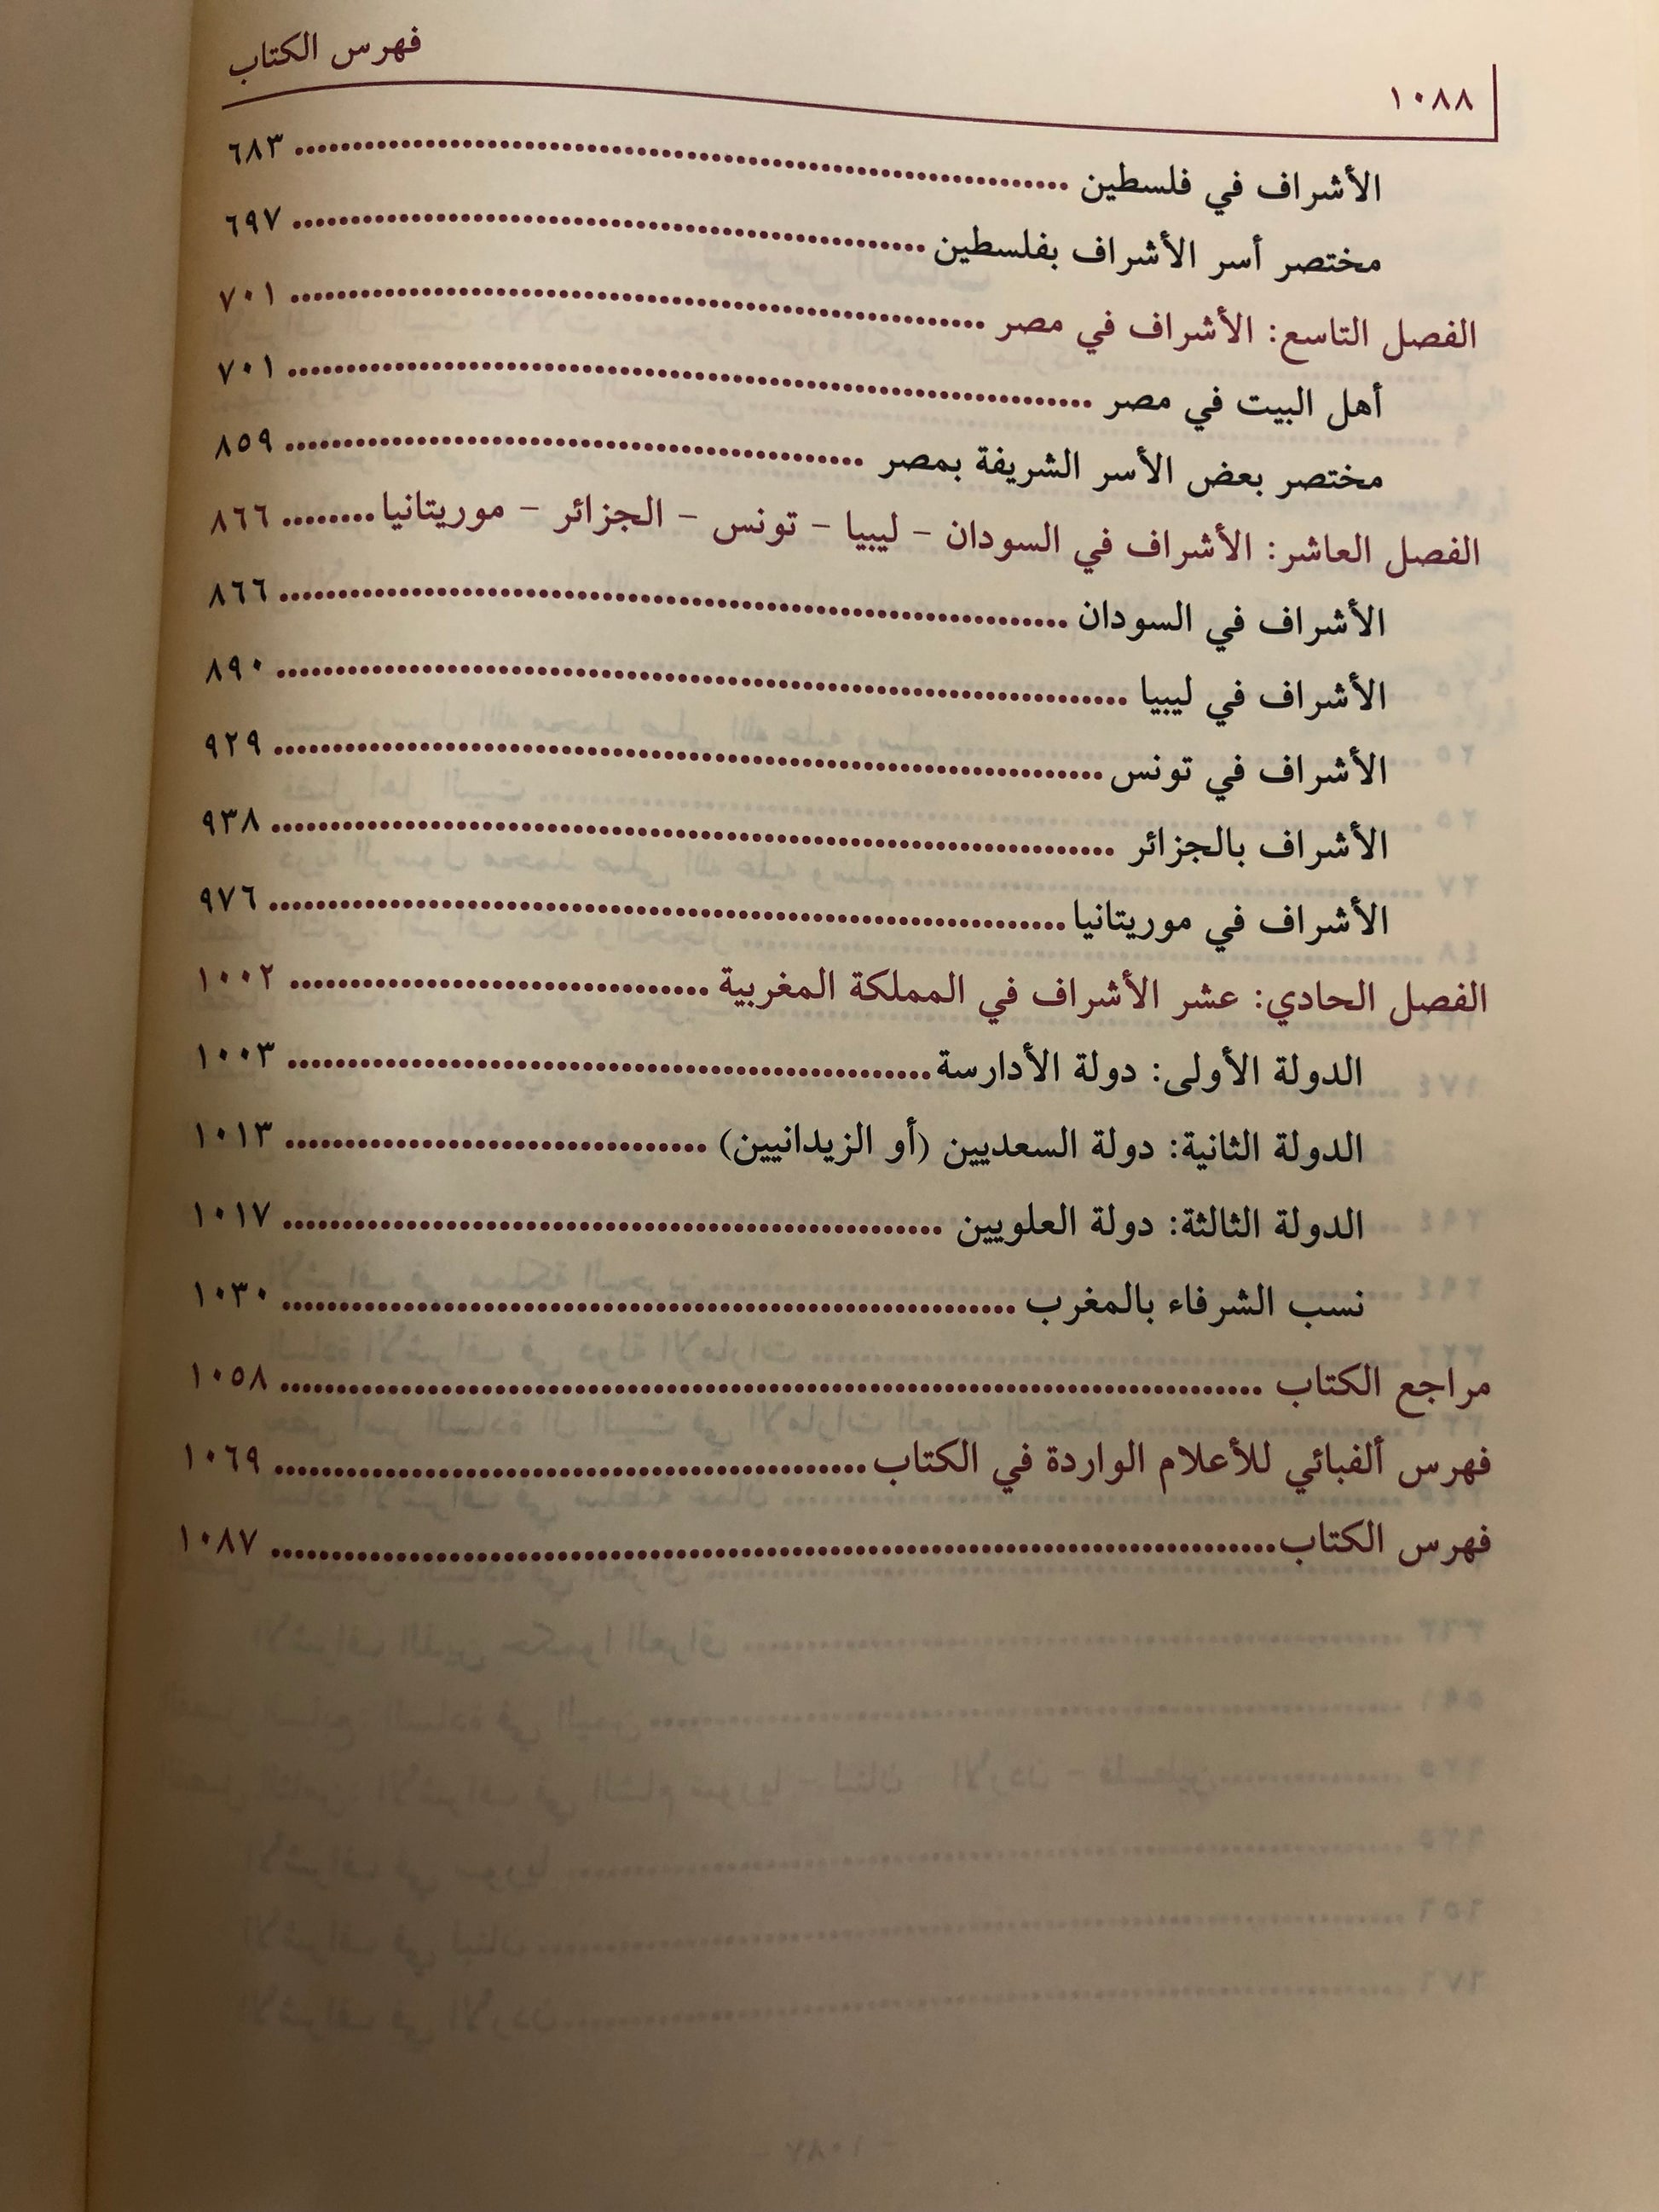 ١٠٨٨ فهرس الكتاب
الأشراف في فلسطين ........ ٦٨٣
مختصر أسر الأشراف بفلسطين ........ ٦٩٧
الفصل التاسع: الأشراف في مصر ........ ٧٠١
أهل البيت في مصر ........ ٧٠١
مختصر بعض الأسر الشريفة بمصر ........ ٨٥٩
الفصل العاشر: الأشراف في السودان - ليبيا - تونس - الجزائر - موريتانيا ........ ٨٦٦
الأشراف في السودان ........ ٨٦٦
الأشراف في ليبيا ........ ٨٩٠
الأشراف في تونس ........ ٩٢٩
الأشراف بالجزائر ........ ٩٣٨
الأشراف في موريتانيا ........ ٩٧٦
الفصل الحادي: عشر الأشراف في المملكة المغربية ........ ١٠٠٢
الدولة الأولى: دولة الأدارسة ........ ١٠٠٣
الدولة الثانية: دولة السعديين (أو الزيدانيين) ........ ١٠١٣
الدولة الثالثة: دولة العلويين ........ ١٠١٧
نسب الشرفاء بالمغرب ........ ١٠٣٠
مراجع الكتاب ........ ١٠٥٨
فهرس ألفبائي للأعلام الواردة في الكتاب ........ ١٠٦٩
فهرس الكتاب ........ ١٠٨٧